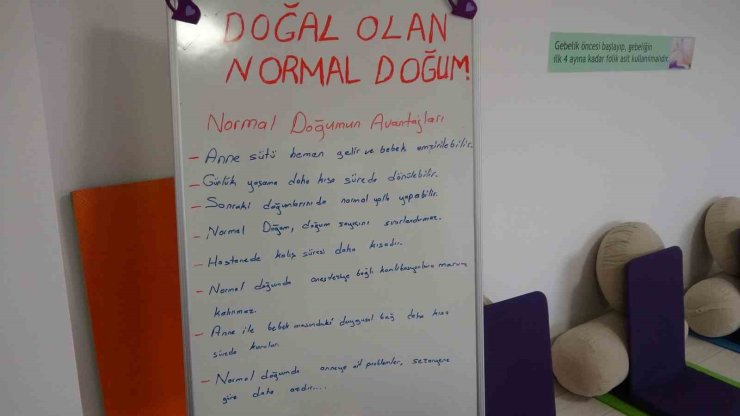 DOĞAL OLAN
NORMAL DOĞUM!
Normal Doğumun Avantajları
- Anne sütü hemen gelir ve bebek emzirilebilir.
- Günlük yaşama daha kısa sürede dönülebilir.
- Sonraki doğumlarını da normal yolla yapabilir.
- Normal Doğum, doğum sayısını sınırlandırmaz.
- Hastanede kalış süresi daha kısadır.
- Normal doğumda anesteziye bağlı komplikasyonlara maruz
kalınmaz.
- Anne ile bebek arasındaki duygusal bağ daha kısa
sürede kurulur.
- Normal doğumda anneye ait problemler, sezaryene
göre daha azdır....
Gebelik öncesi başlayıp, gebeliğin
ilk 4 ayına kadar folik asit kullanılmalıdır.